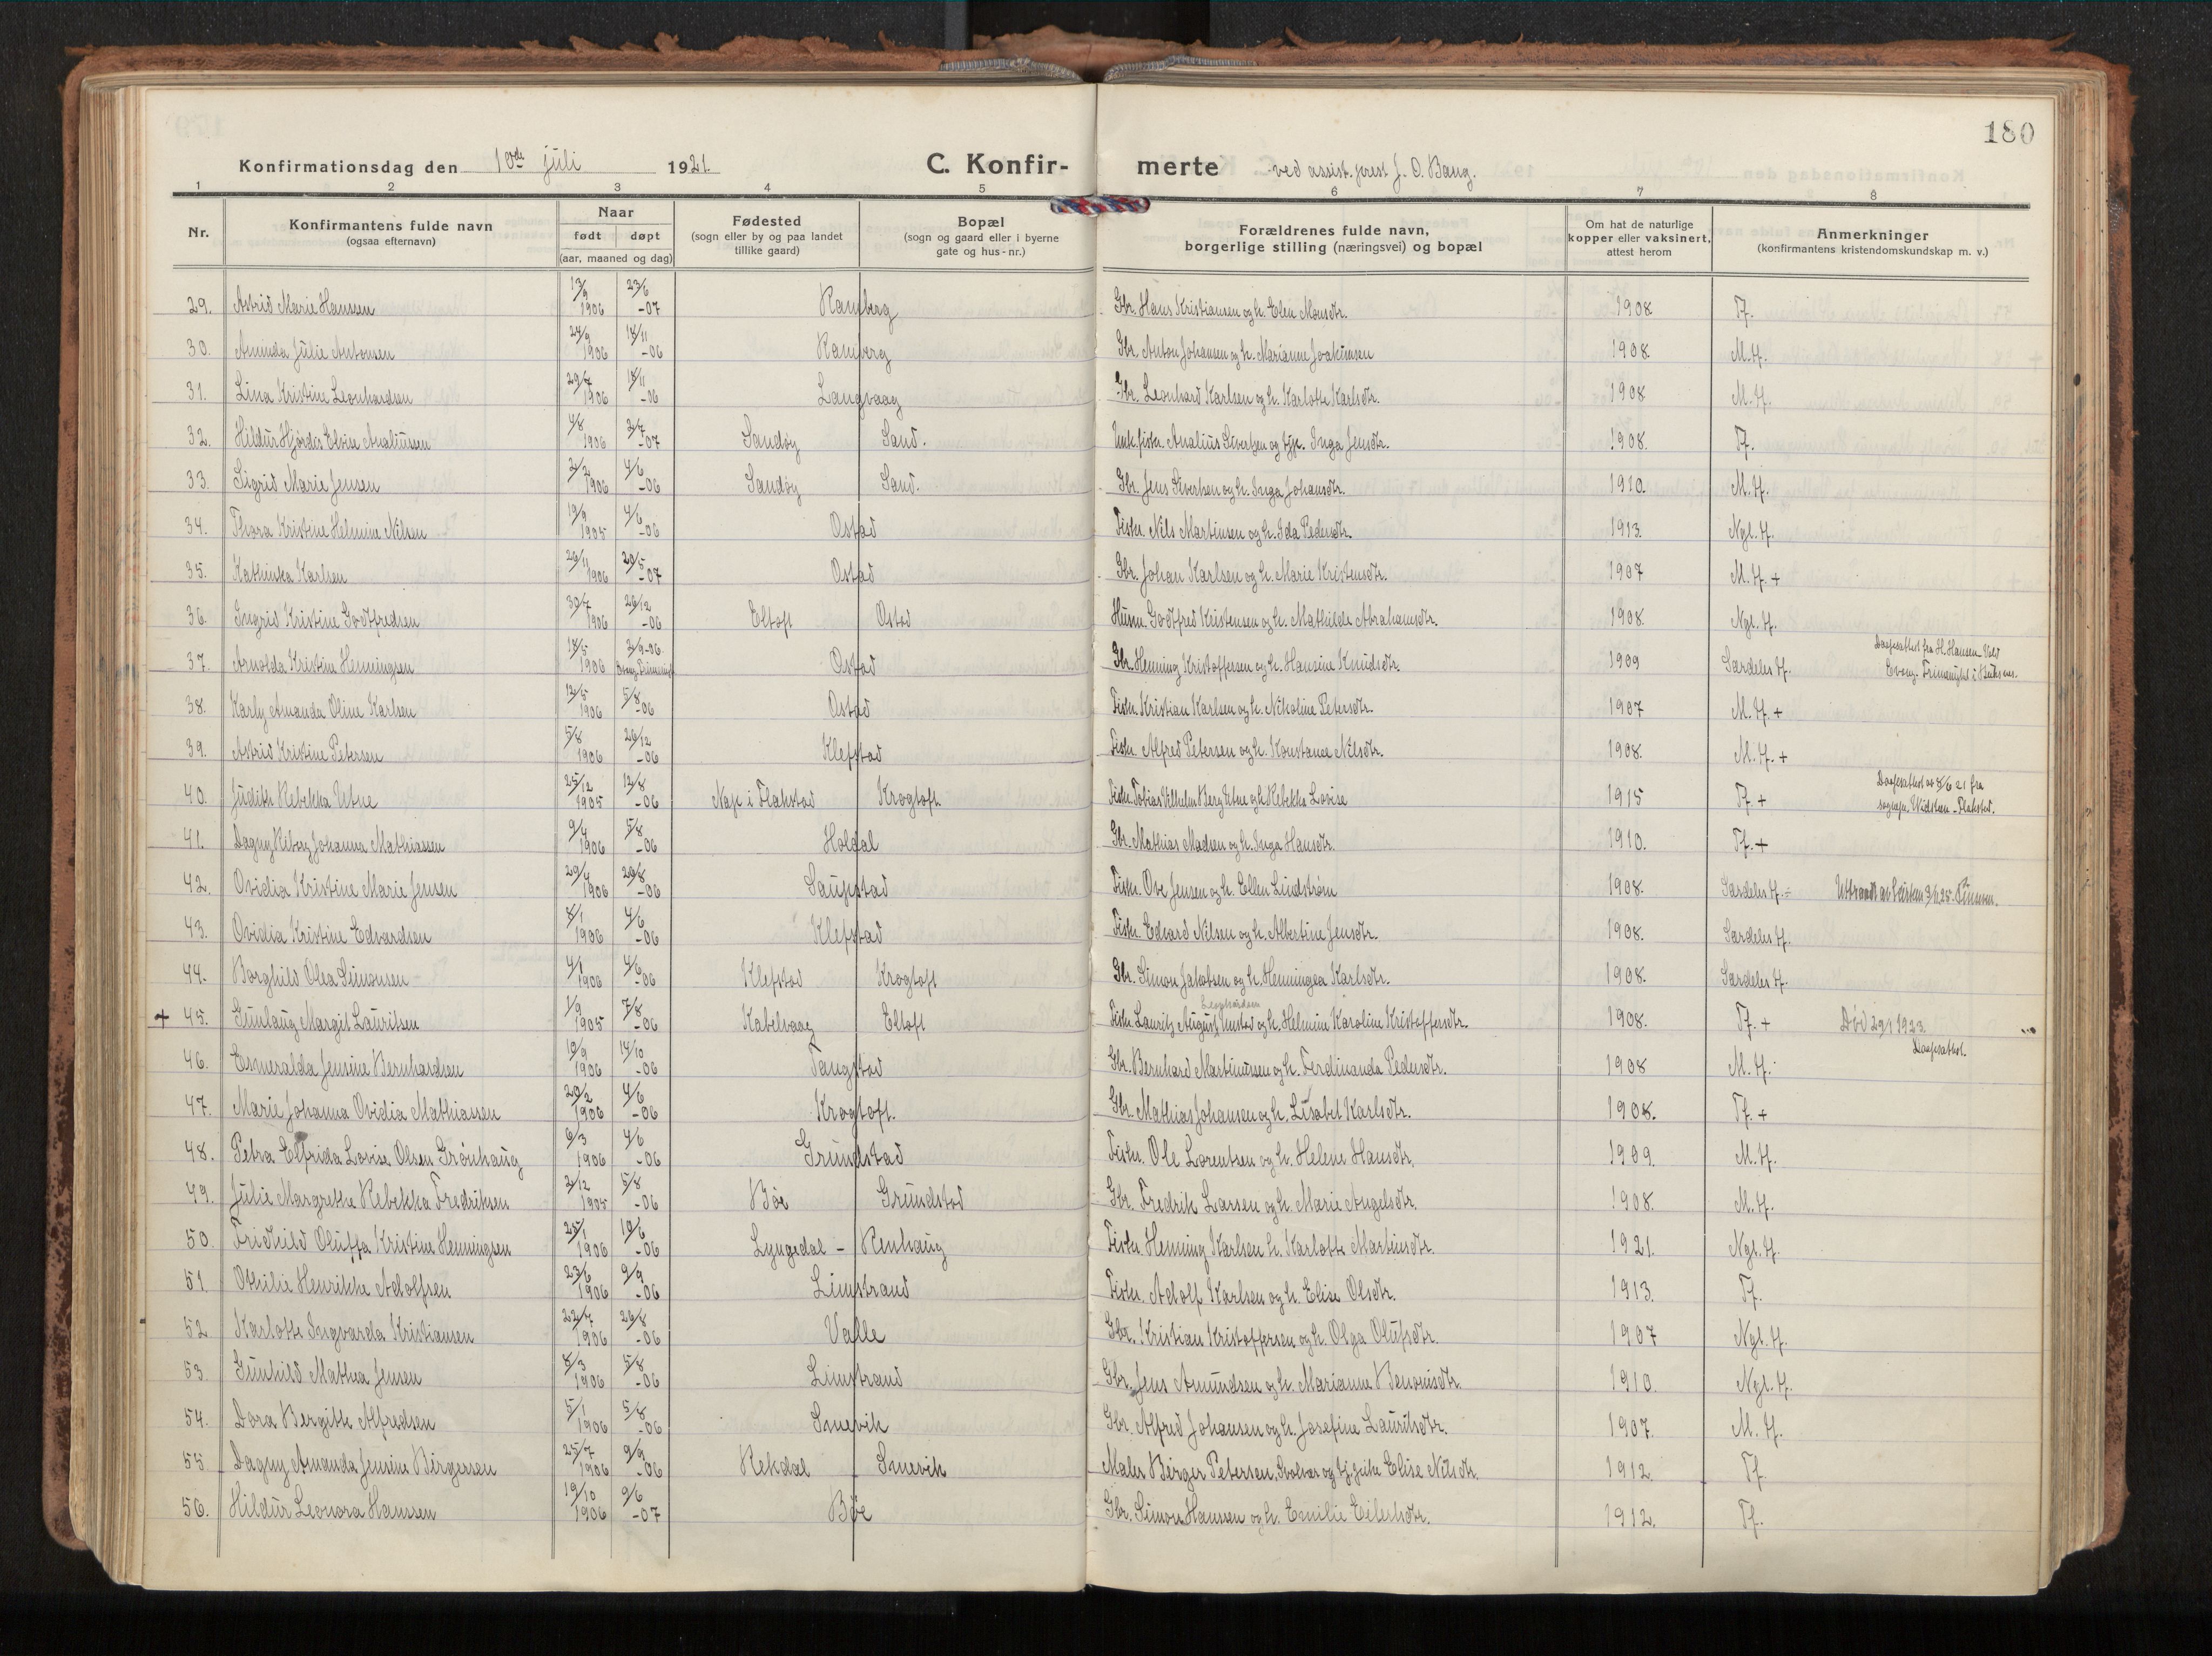 180
Konfirmationsdag den 10de juli 1921. C. Konfir- merte ved assist. prest J. O. Bang.
1 2 3 4 5 6 7 8
Nr. Konfirmantens fulde navn (ogsaa efternavn) Naar født døpt (aar, maaned og dag) Fødested (sogn eller by og paa landet tillike gaard) Bopæl (sogn og gaard eller i byerne gate og hus-nr.) Forældrenes fulde navn, borgerlige stilling (næringsvei) og bopæl Om hat de naturlige kopper eller vaksinert, attest herom Anmerkninger (konfirmantens kristendomskundskap m. v.)
29. Astrid Marie Hansen 13/9 1906 23/6 -07 Ramberg Gbr. Hans Kristiansen og h. Elen Monsdtr. 1908 Tf.
30. Aminda Julie Antonsen 24/9 1906 18/11 -06 Ramberg Gbr. Anton Johansen og h. Marianne Joakimsen 1908 M. H.
31. Lina Kristine Leonhardsen 29/7 1906 18/11 -06 Langvaag Gbr. Leonhard Karlsen og h. Karlotte Karlsdtr. 1908 M. H.
32. Hildur Hjørdis Elvise Analiussen 4/8 1906 -07 Sandøy Sand. Analius Sivertsen og Inga Jensdtr. 1908. Tf.
33. Sigrid Marie Jensen 2/2 1906 4/6 -06 Sandøy Sand. Gbr. Jens Sivertsen og h. Inga Johansdtr. 1910 M. H.
34. Thora Kristine Helmine Nilsen 19/9 1905 4/6 -06 Ostad Fisker. Nils Martinsen og h. Ida Pedersdtr. 1913. Ngl. H.
35. Kathinka Karlsen 26/11 1906 20/5 -07 Ostad Gbr. Johan Karlsen og h. Marie Kristensdtr. 1907 M. H. +
36. Ingrid Kristine Godtfredsen 30/7 1906 26/12 -06 Eltoft Ostad Husm. Godtfred Kristensen og h. Mathilde Abrahamsdtr. 1908. Ngl. H.
37. Arnolda Kristine Henningsen 18/5 1906 2/9-06 Ostad Gbr. Henning Kristoffersen og h. Hansine Knudsdtr. 1909 Særdeles H. Daapsattest fra H. Hansen Evang. Frimenighet i Buksnes.
38. Karly Amanda Oline Karlsen 12/5 1906 5/8 -06 Ostad Fisker. Kristian Karlsen og h. Nikoline Petersdtr. 1907 M. H. +
39. Astrid Kristine Petersen 5/8 1906 26/12 -06 Klefstad Fisker. Alfred Petersen og h. Konstanse Nilsdtr. 1908. M. H. +
40. Judith Rebekka Utne 25/12 1905 12/8 -06 Nap i Flakstad Krogtoft Fisker. Tobias Vilhelm Berg Utne og h. Rebekka Lovise 1915 Tf. + Daapsattest av 8/6 21 fra sognepr. Widsteen - Flakstad.
41. Dagny Johanna Mathiassen 9/4 1906 5/8 -06 Holdal Gbr. Mathias Madsen og h. Inga Hansdtr. 1910. Tf. +
42. Ovidia Kristine Marie Jensen 29/4 1906 20/8 -06 Saupstad Fisker. Ove Jensen og h. Ellen Lindstrøm 1908. Særdeles H. Uttraadt av kirken 3/6 25.
43. Ovidia Kristine Edvardsen 8/1 1906 4/6 -06 Klefstad Fisker. Edvard Nilsen og h. Albertine Jensdtr. 1908. Særdeles H.
44. Borghild Olea Simonsen 4/1 1906 4/6 -06 Klefstad Krogtoft Gbr. Simon Jakobsen og h. Henningea Karlsdtr. 1908. Særdeles H.
+ 45. Gunlaug Margit Lauritsen 1/9 1905 7/8 -06 Kabelvaag Eltoft Fisker Lauritz August Leonhardsen og h. Helmine Karoline Kristoffersdtr. 1908. Tf. + Død 29/1 1923.
46. Esmeralda Jensine Bernhardsen 10/9 1906 14/10 -06 Tangstad Gbr. Bernhard Martinussen og h. Ferdinanda Pedersdtr. 1908 M. H. Daapsattest.
47. Marie Johanna Ovidia Mathiassen 20/2 1906 4/6 -06 Krogtoft. Gbr. Mathias Johansen og h. Lisabet Karlsdtr. 1908. Tf. +
48. Petra Elfrida Lovise Olsen Grønhaug 6/3 1906 4/6 -06 Grundstad Fisker. Ole Lorentsen og h. Helene Hansdtr. 1909. M. H.
49. Julie Margrethe Rebekka Fredriksen 2/12 1905 5/8 -06 Bøe Grundstad Gbr. Fredrik Larsen og h. Marie Angelsdtr. 1908. M. H.
50. Fridhild Oluffa Kristine Henningsen 25/1 1906 10/6 -06 Lyngedal - Renhaug Fisker. Henning Karlsen h. Karlotte Martinsdtr. 1921. Ngl. H.
51. Othilie Henrikke Adolfsen 23/6 1906 9/9 -06 Limstrand Fisker. Adolf Karlsen og h. Elise Olsdtr. 1913. Tf.
52. Karlotte Ingvarda Kristiansen 22/7 1906 26/8 -06 Valle Gbr. Kristian Kristoffersen og h. Olga Olufsdtr. 1907 Ngl. H.
53. Gunhild Mathea Jensen 8/3 1906 5/8 -06 Limstrand Gbr. Jens Amundsen og h. Marianne Benonisdtr. 1910. Ngl. H.
54. Dora Bergitte Alfredsen 5/1 1906 5/8 -06 Smevik Gbr. Alfred Johansen og h. Josefine Lauritsdtr. 1907. M. H.
55. Dagny Amanda Jensine Birgersen 25/7 1906 9/9 -06 Rekdal Smevik Maler Birger Petersen, Svolvær og Elise Nilsdtr. 1912. Tf.
56. Hildur Leonora Hansen 19/10 1906 9/6 -07 Bøe Gbr. Simon Hansen og h. Emilie Eilertsdtr. 1912. Tf.